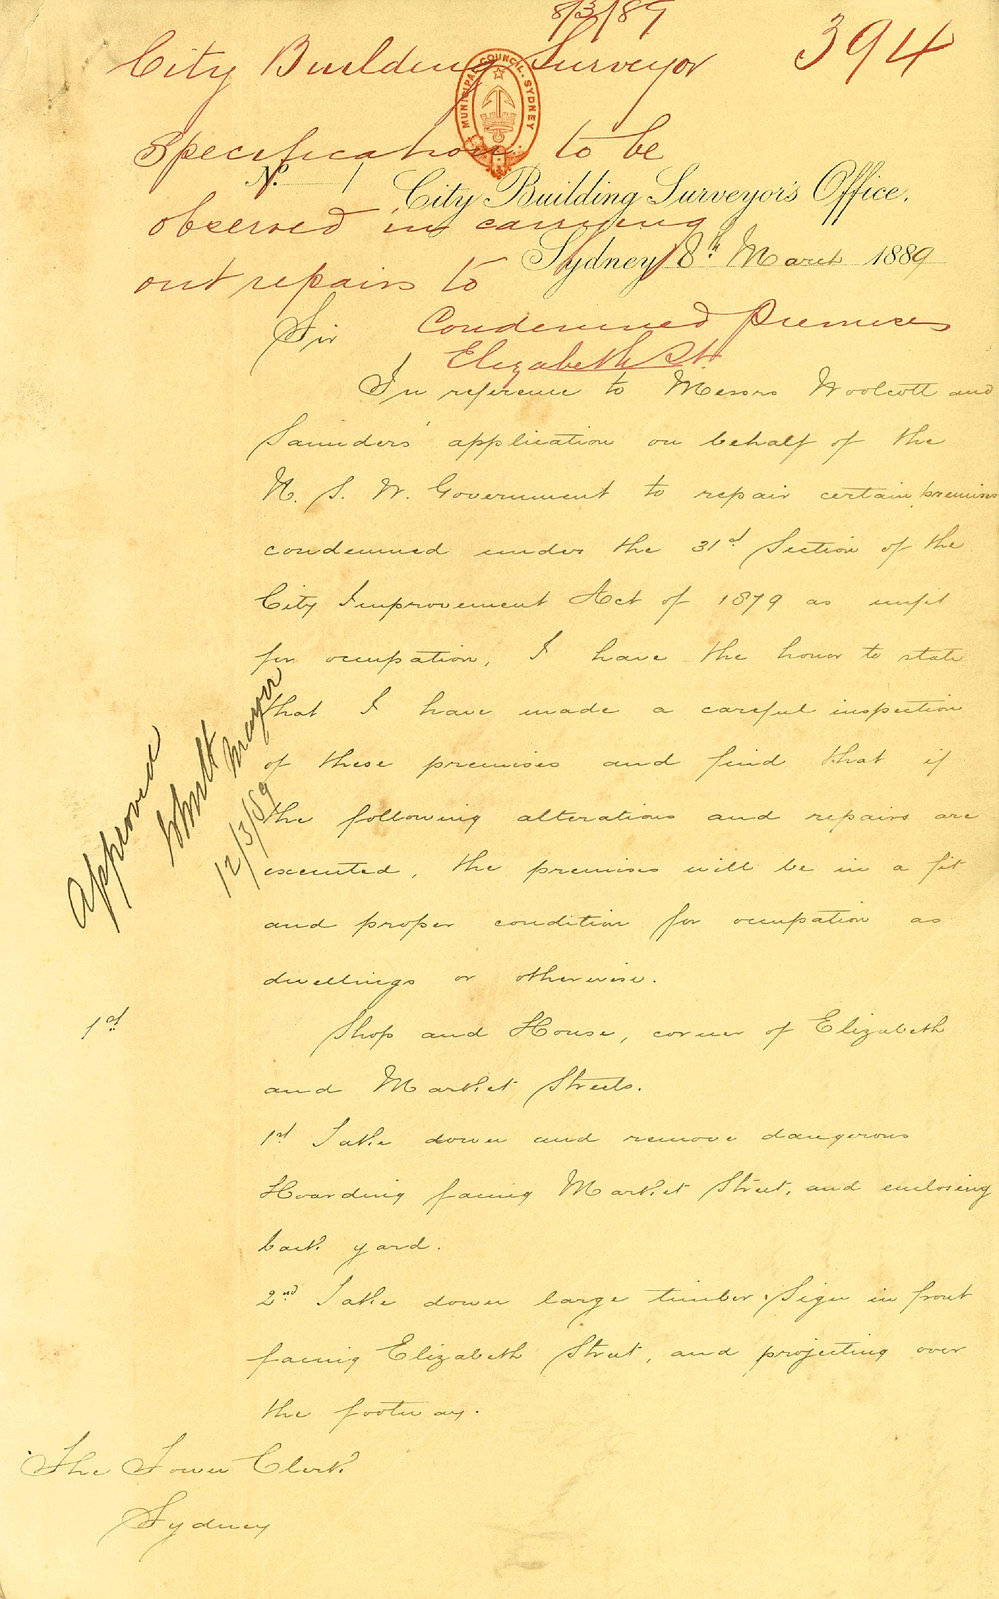 8/3/89
394
City Building Surveyor
MUNICIPAL COUNCIL · SYDNEY
Specification to be
observed in carrying
out repairs to
Condemned Premises
Elizabeth St.
No. 1 City Building Surveyor's Office.
Sydney 8th March 1889
Sir
In reference to Messrs Woolcott and
Saunders' application on behalf of the
N. S. W. Government to repair certain premises
condemned under the 31st Section of the
City Improvement Act of 1879 as unfit
for occupation, I have the honor to state
that I have made a careful inspection
of these premises and find that if
the following alterations and repairs are
executed, the premises will be in a fit
and proper condition for occupation as
dwellings or otherwise.
Approved
Mayor
12/3/89
1st Shop and House, corner of Elizabeth
and Market Streets.
1st Take down and remove dangerous
Hoarding facing Market Street, and enclosing
back yard.
2nd Take down large timber Sign in front
facing Elizabeth Street, and projecting over
the footway.
The Town Clerk
Sydney